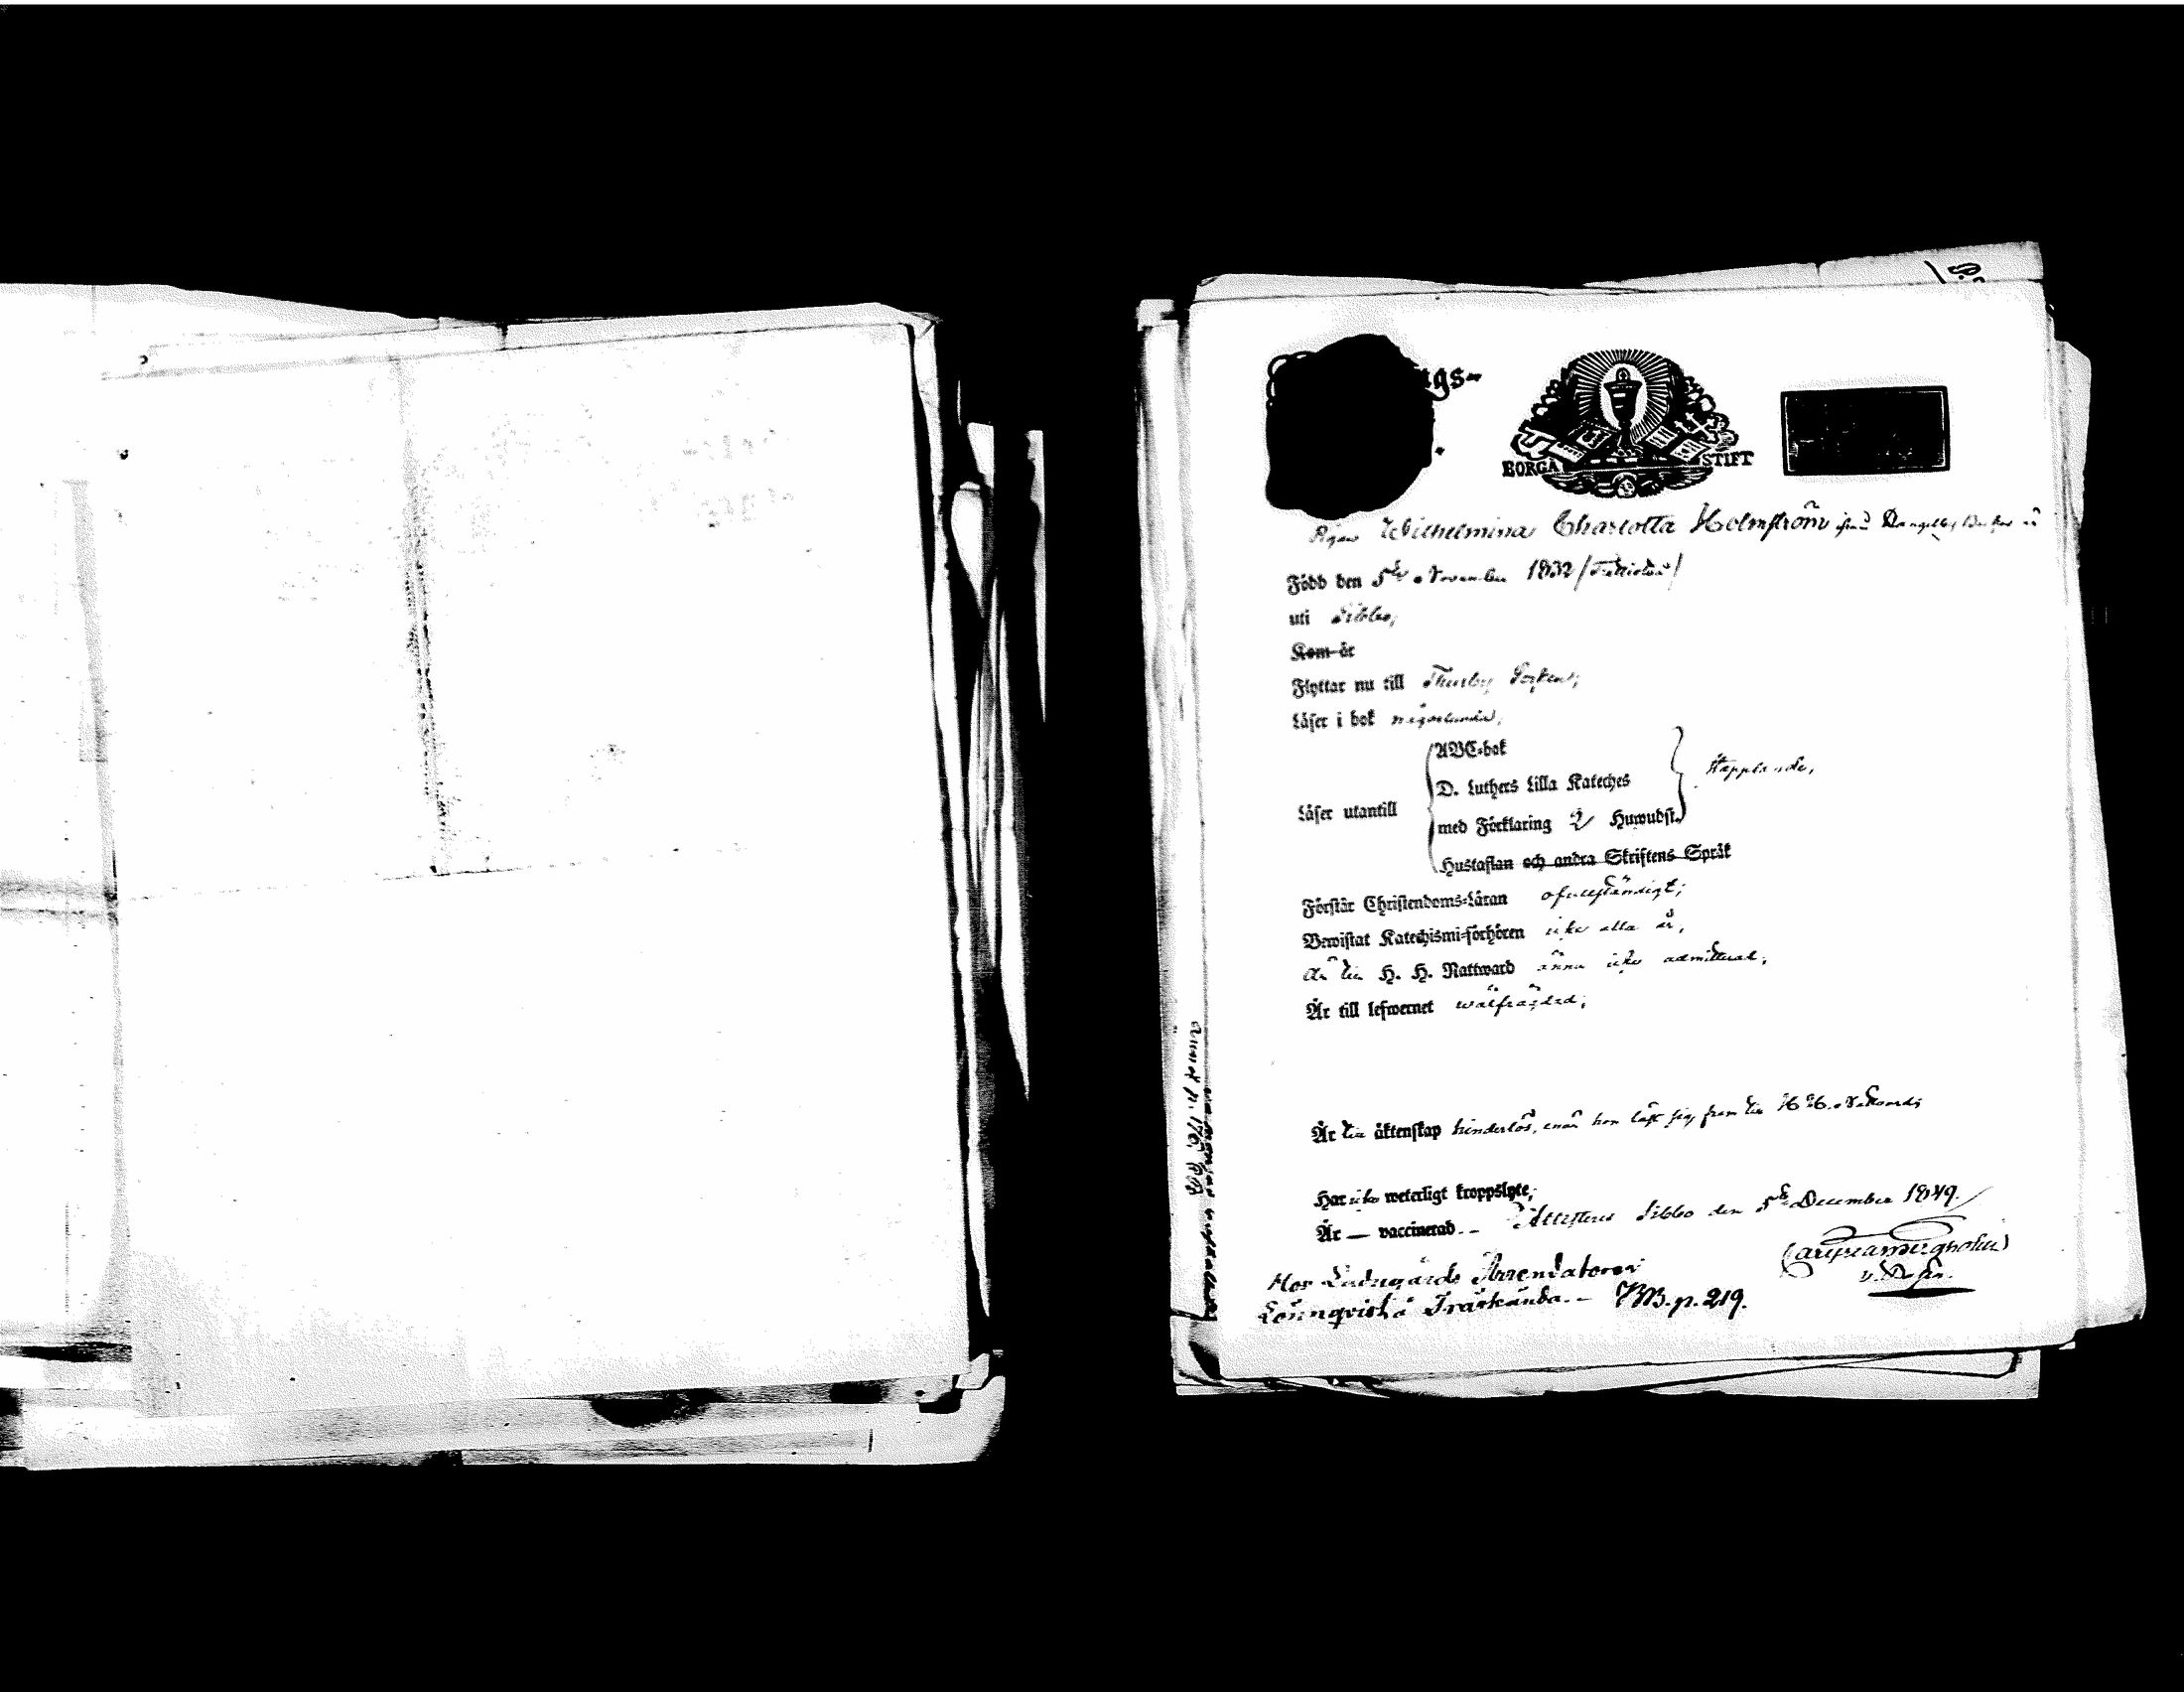 gs-
BORGÅ STIFT
Pigan Wilhelmina Charlotta Holmström ifrån
Född den 5te November 1832
uti Sibbo,
Kom år
Flyttar nu till Thusby Socken;
Läser i bok någorlunda,
ABC-bok
D. Luthers Lilla Kateches
Stapplande,
Läser utantill
med Förklaring 2 Huwudst.
Hustaflan och andra Skriftens Språk
Förstår Christendoms-Läran ofullständigt;
Bewistat Katechismi-förhören icke alla år,
Är till H. H. Nattward ännu icke admitterad;
Är till lefwernet wälfräjdad;
Är till äktenskap hinderlös, enär hon läst sig fram till H. H. Nattward;
Har icke weterligt kroppslyte;
Är — vaccinerad. - Attesteras Sibbo den 5te December 1849.
Hos Ladugårds Arrendatoren
Lönnqvist å Träskända. - KB. p. 219.